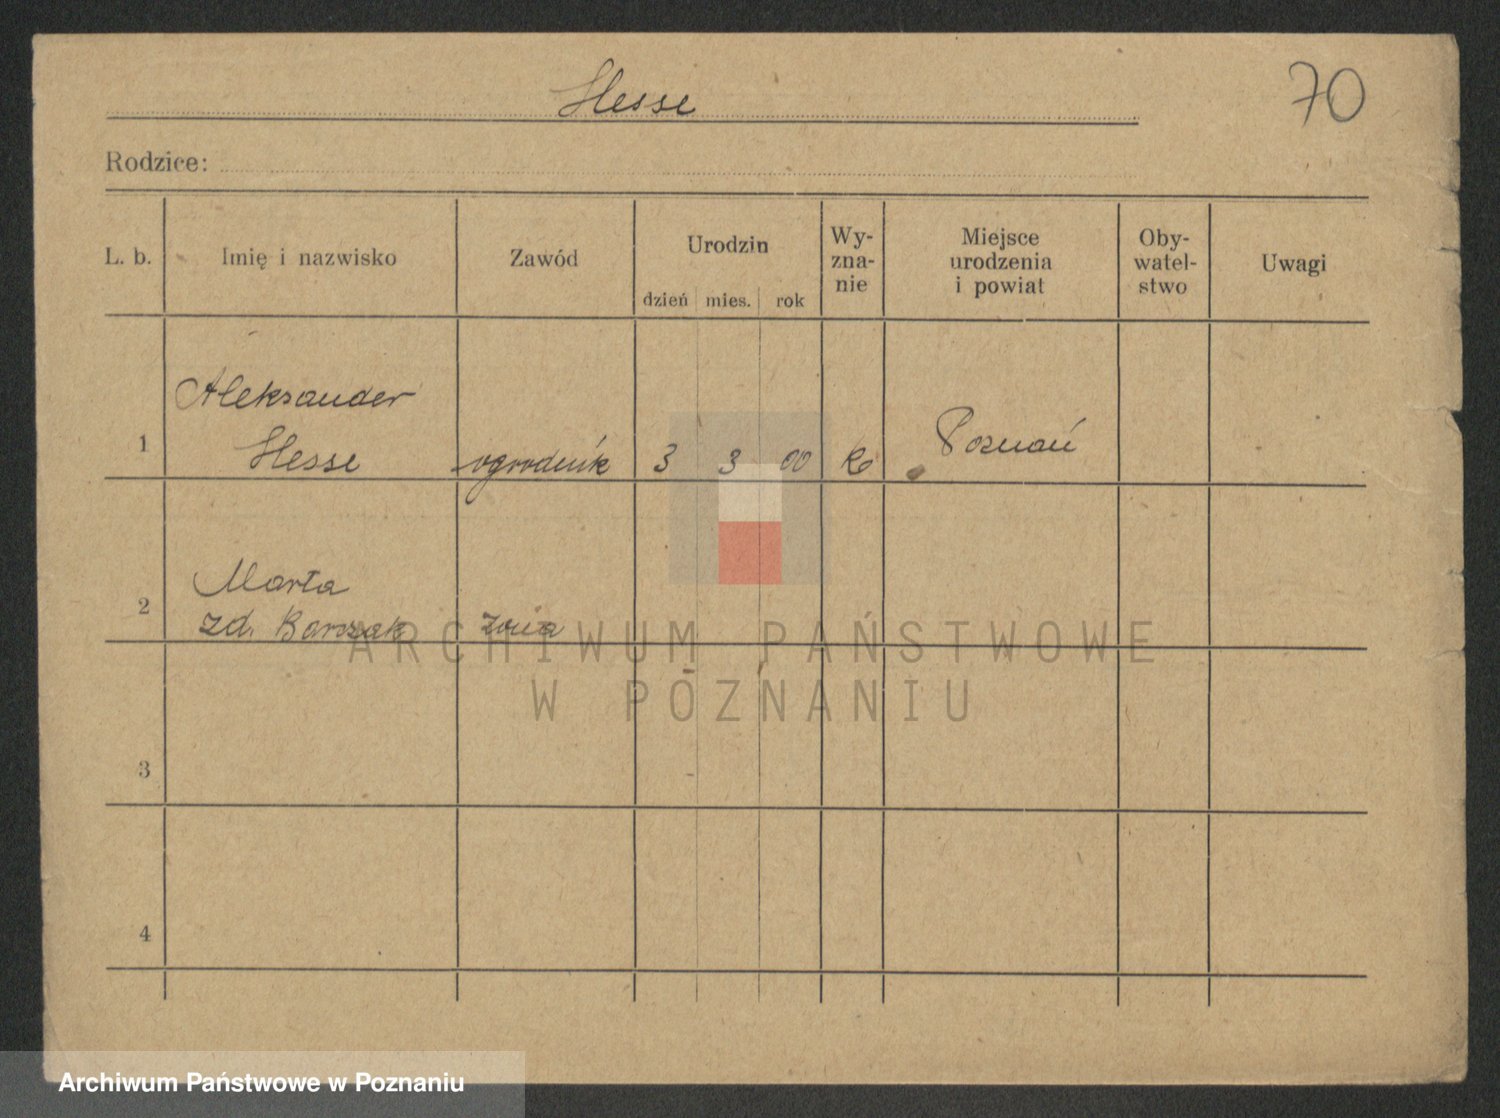 Hesse
70
Rodzice:
L. b.
Imię i nazwisko
Zawód
Urodzin
dzień mies. rok
Wy-
zna-
nie
Miejsce
urodzenia
i powiat
Oby-
watel-
stwo
Uwagi
Aleksander
1 Hesse ogrodnik 3 3 00 Poznań
2 Marta
zd. Barszak żona
3
4
ARCHIWUM PAŃSTWOWE
W POZNANIU
Archiwum Państwowe w Poznaniu